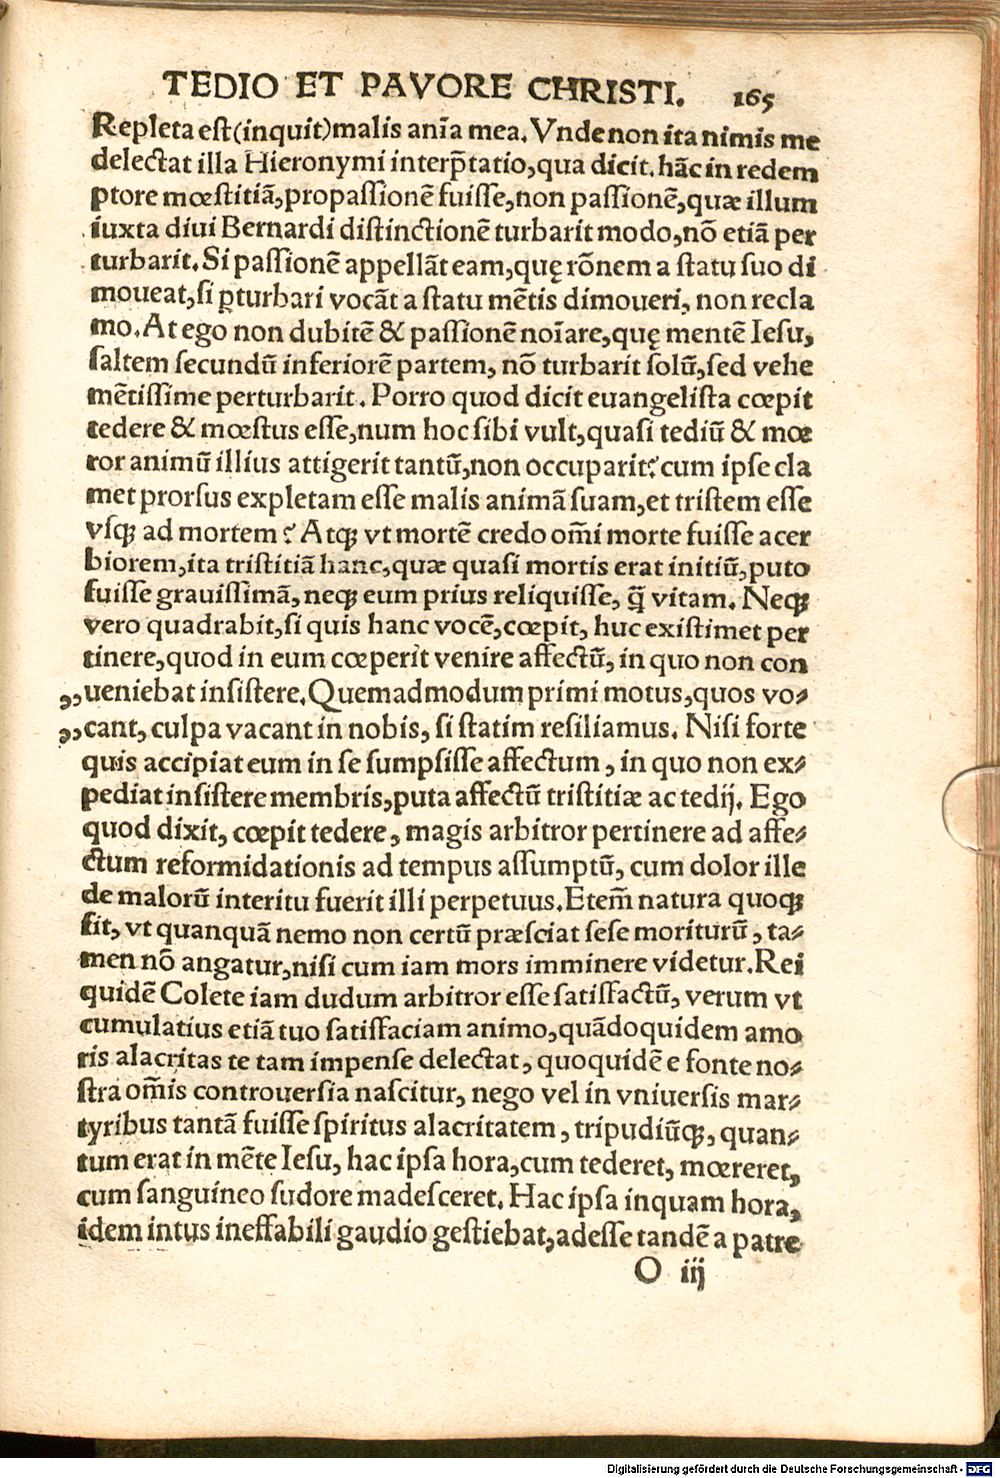 TEDIO ET PAVORE CHRISTI. 165
Repleta est(inquit)malis anĩa mea. Vnde non ita nimis me
delectat illa Hieronymi interp̃tatio, qua dicit. hãc in redem
ptore mœstitiã, propassionẽ fuisse, non passionẽ, quæ illum
iuxta diui Bernardi distinctionẽ turbarit modo, nõ etiã per
turbarit. Si passionẽ appellãt eam, quę rõnem a statu suo di
moueat, si ꝑturbari vocãt a statu mẽtis dimoueri, non recla
mo. At ego non dubitẽ & passionẽ noĩare, quę mentẽ Iesu,
saltem secundũ inferiorẽ partem, nõ turbarit solũ, sed vehe
mẽtissime perturbarit. Porro quod dicit euangelista cœpit
tedere & mœstus esse, num hoc sibi vult, quasi tediũ & mœ
ror animũ illius attigerit tantũ, non occuparit? cum ipse cla
met prorsus expletam esse malis animã suam, et tristem esse
vsqꝫ ad mortem? Atqꝫ vt mortẽ credo om̃i morte fuisse acer
biorem, ita tristitiã hanc, quæ quasi mortis erat initiũ, puto
fuisse grauissimã, neqꝫ eum prius reliquisse, q̃ꝫ vitam. Neqꝫ
vero quadrabit, si quis hanc vocẽ, cœpit, huc existimet per
tinere, quod in eum cœperit venire affectũ, in quo non con
,,ueniebat insistere. Quemadmodum primi motus, quos vo⸗
,,cant, culpa vacant in nobis, si statim resiliamus. Nisi forte
quis accipiat eum in se sumpsisse affectum, in quo non ex⸗
pediat insistere membris, puta affectũ tristitiæ ac tedij. Ego
quod dixit, cœpit tedere, magis arbitror pertinere ad affe⸗
ctum reformidationis ad tempus assumptũ, cum dolor ille
de malorũ interitu fuerit illi perpetuus. Etem̃ natura quoqꝫ
fit, vt quanquã nemo non certũ præsciat sese moriturũ, ta⸗
men nõ angatur, nisi cum iam mors imminere videtur. Rei
quidẽ Colete iam dudum arbitror esse satisfactũ, verum vt
cumulatius etiã tuo satisfaciam animo, quãdoquidem amo
ris alacritas te tam impense delectat, quoquidẽ e fonte no⸗
stra om̃is controuersia nascitur, nego vel in vniuersis mar⸗
tyribus tantã fuisse spiritus alacritatem, tripudiũqꝫ, quan⸗
tum erat in mẽte Iesu, hac ipsa hora, cum tederet, mœreret,
cum sanguineo sudore madesceret. Hac ipsa inquam hora,
idem intus ineffabili gaudio gestiebat, adesse tandẽ a patre
O iij
Digitalisierung gefördert durch die Deutsche Forschungsgemeinschaft - DFG